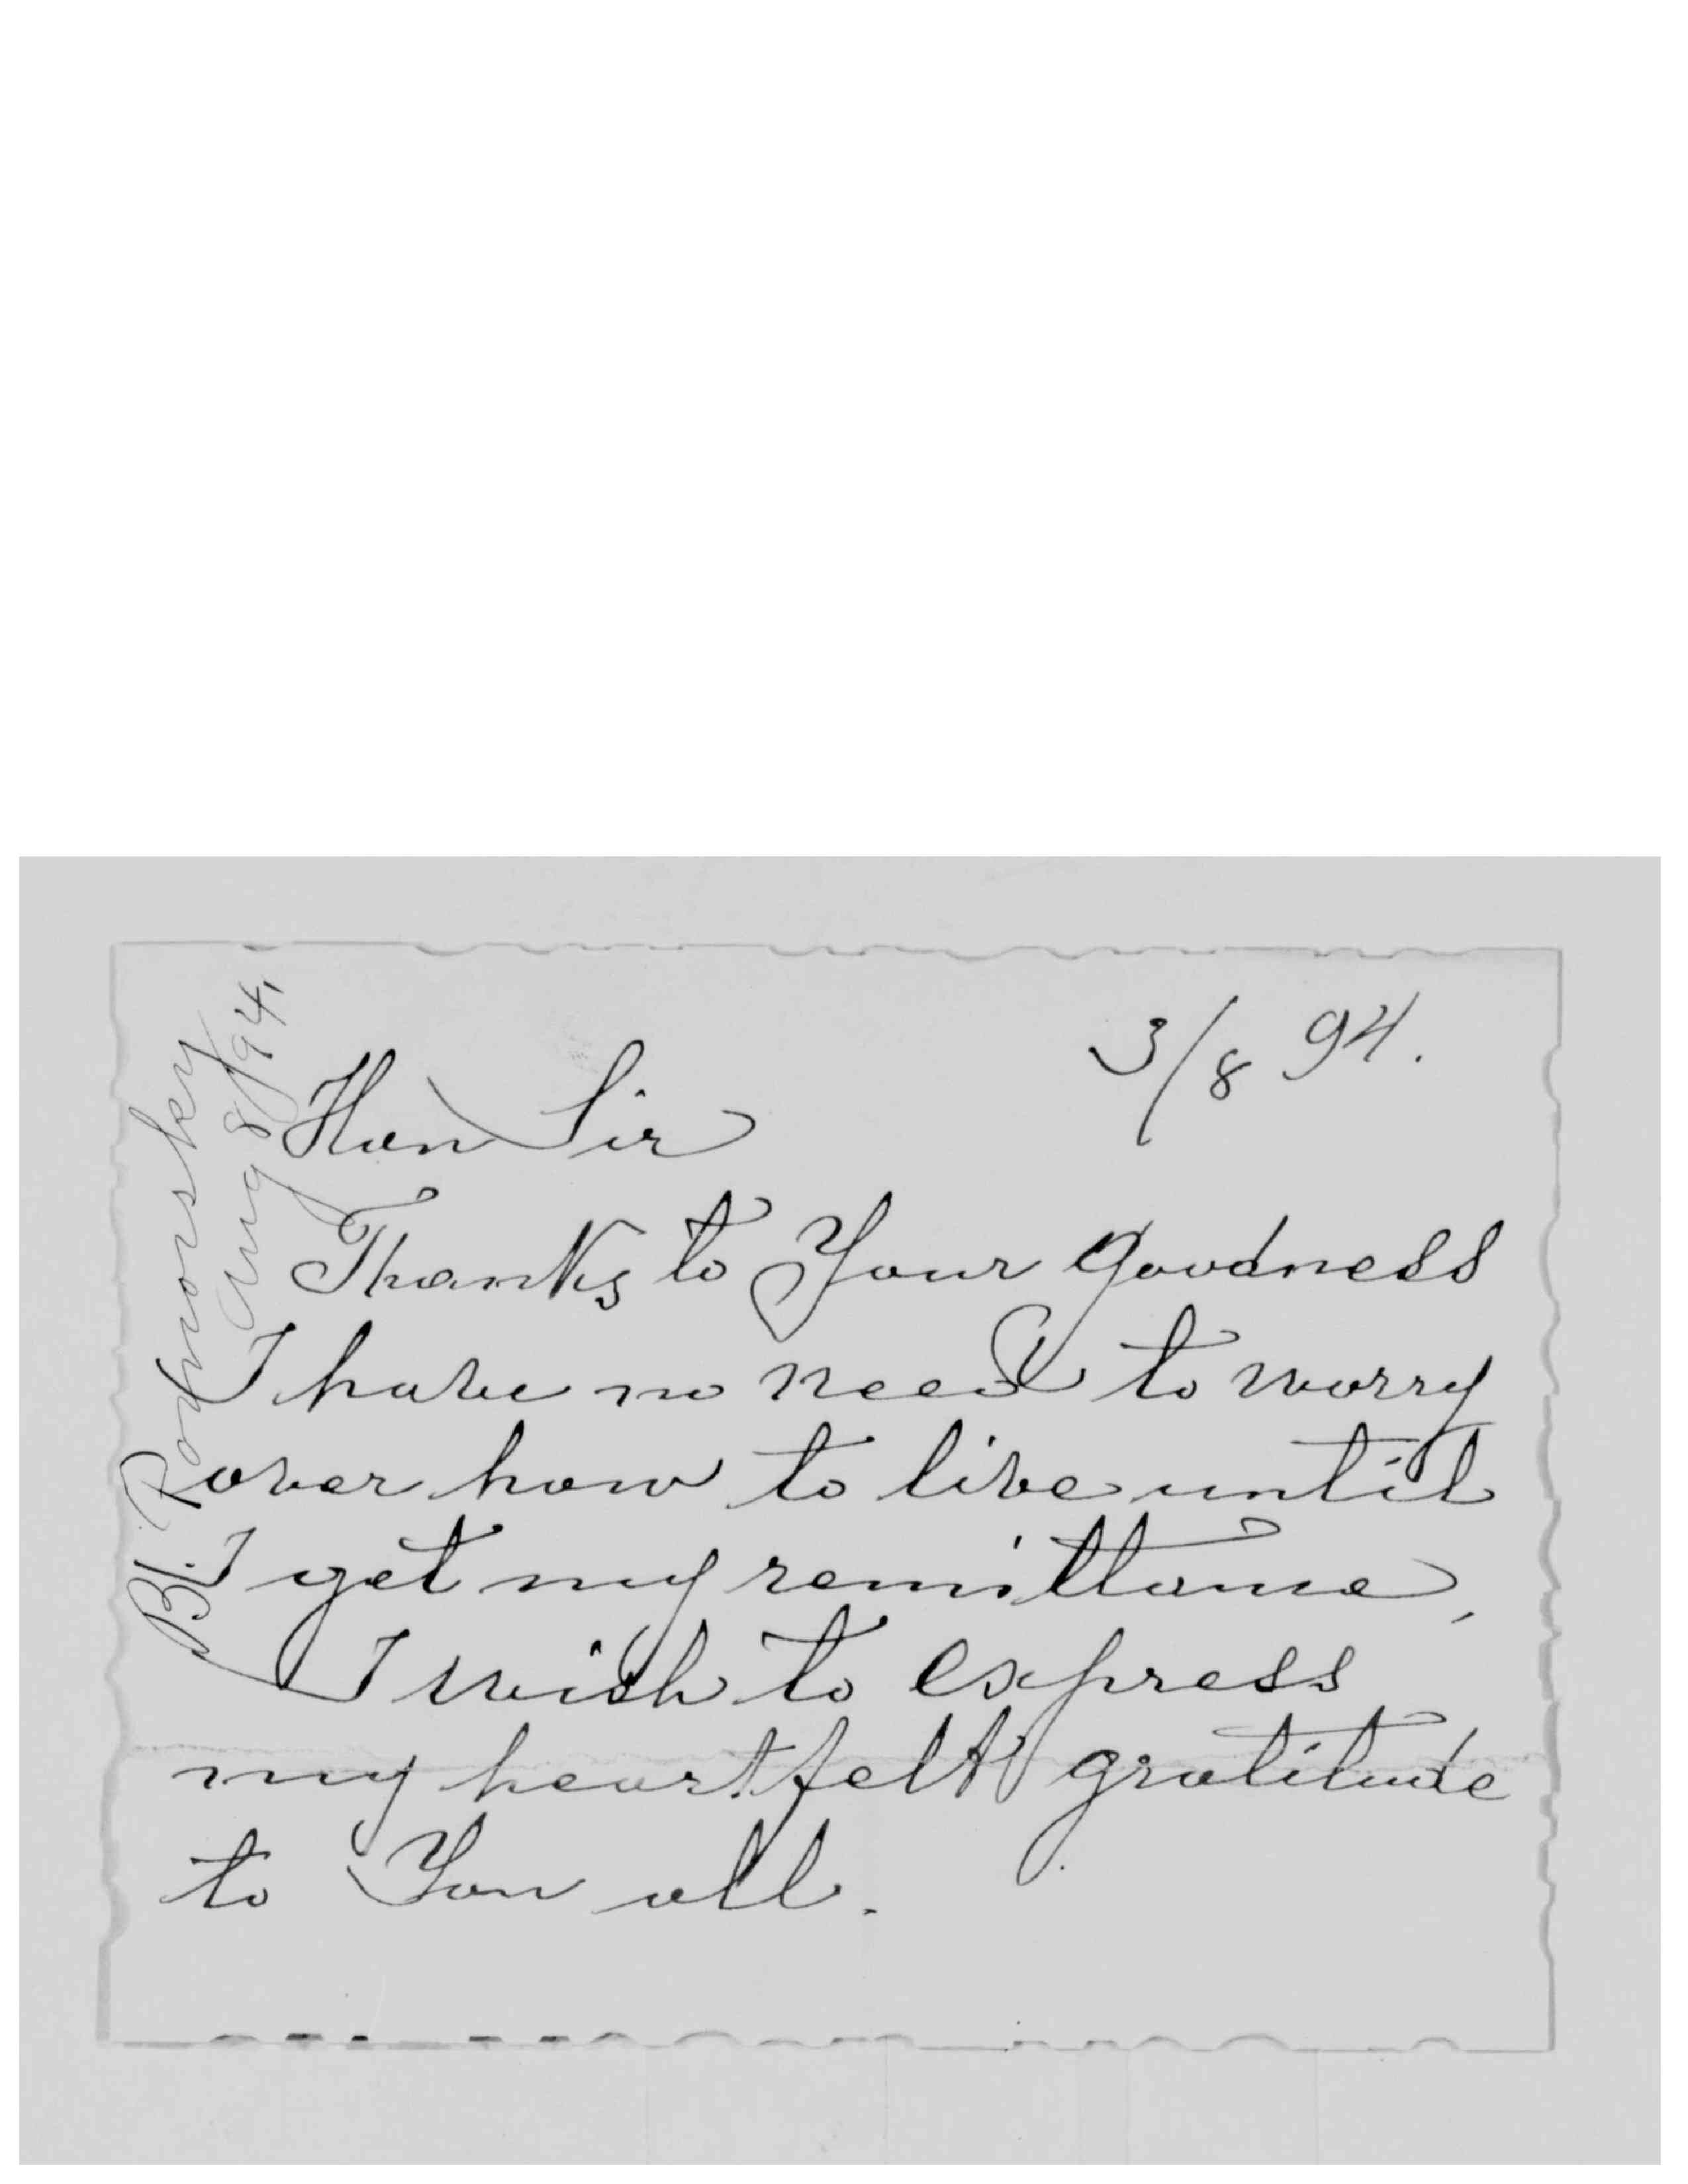 3/8 94.
Hon Sir
Thanks to Your goodness
I have no need to worry
over how to live until
I get my remittance,
I wish to express
my heartfelt gratitude
to You all.
Bl.
Aug 8/94,